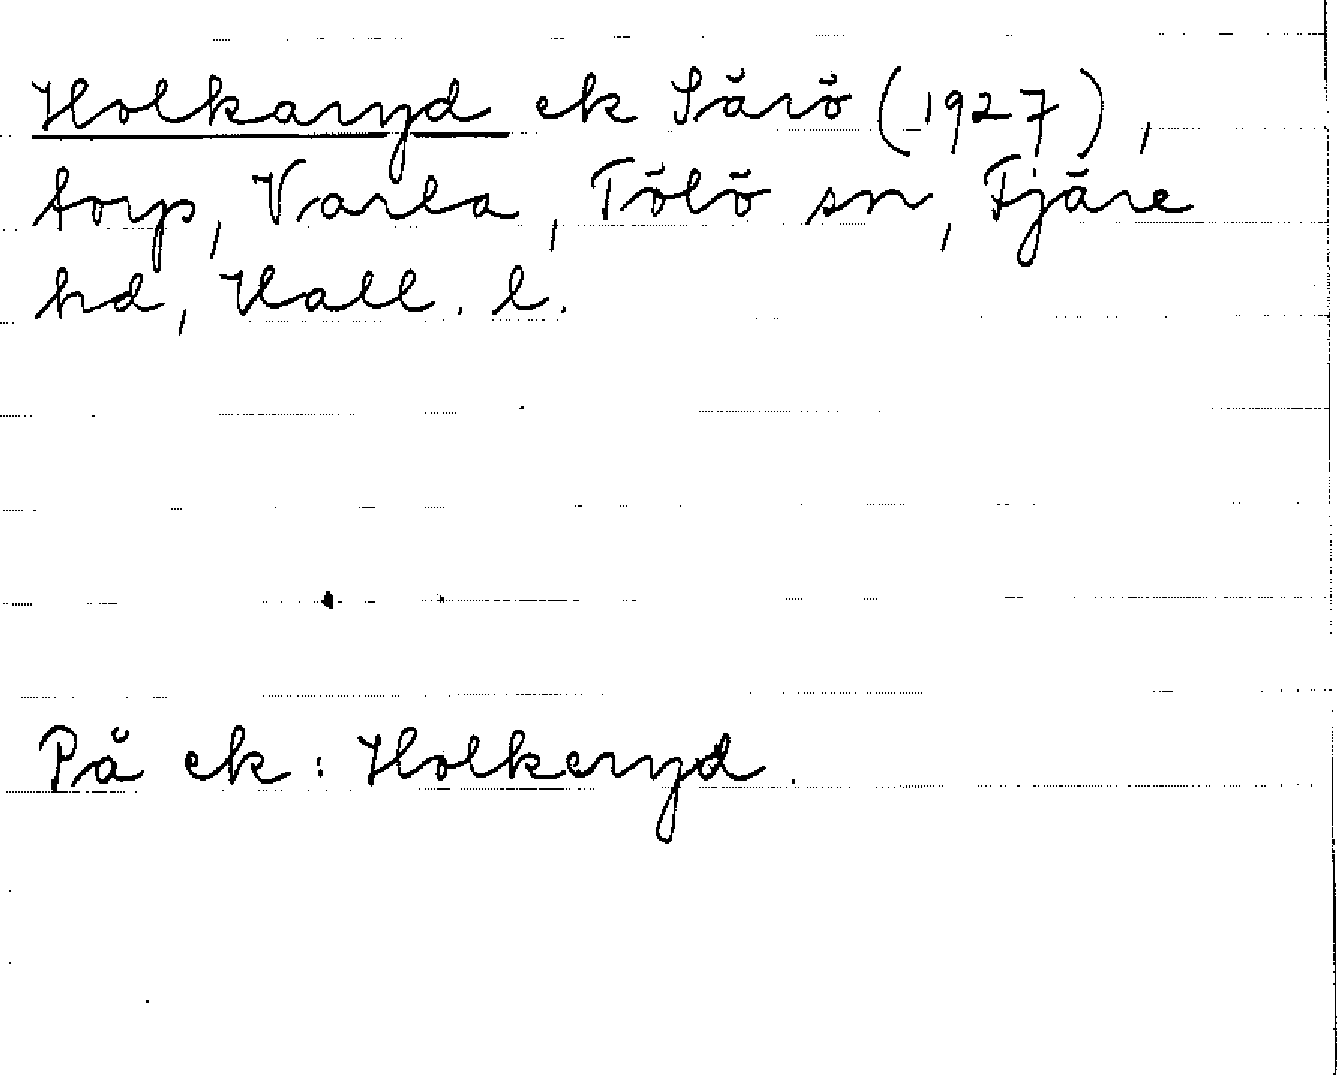 Holkaryd ek Särö (1927),
torp, Varla, Tölö sn, Fjäre
hd, Hall. l.
På ek: Holkeryd.